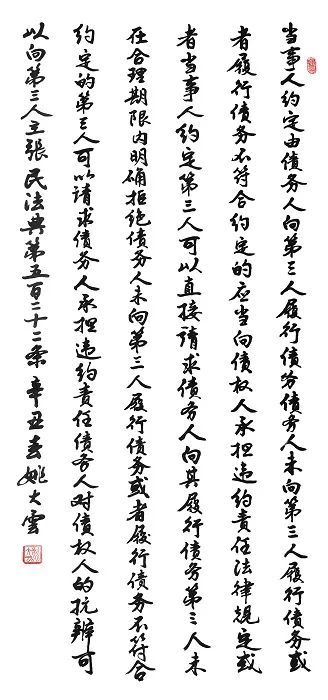 当事人约定由债务人向第三人履行债务债务人未向第三人履行债务或
者履行债务不符合约定的应当向债权人承担违约责任法律规定或
者当事人约定第三人可以直接請求债务人向其履行债务第三人未
在合理期限内明确拒绝债务人未向第三人履行债务或者履行债务不符合
约定的第三人可以請求债务人承担违约责任债务人对债权人的抗辨可
以向第三人主張民法典第五百二十二条 辛丑春姚大雲